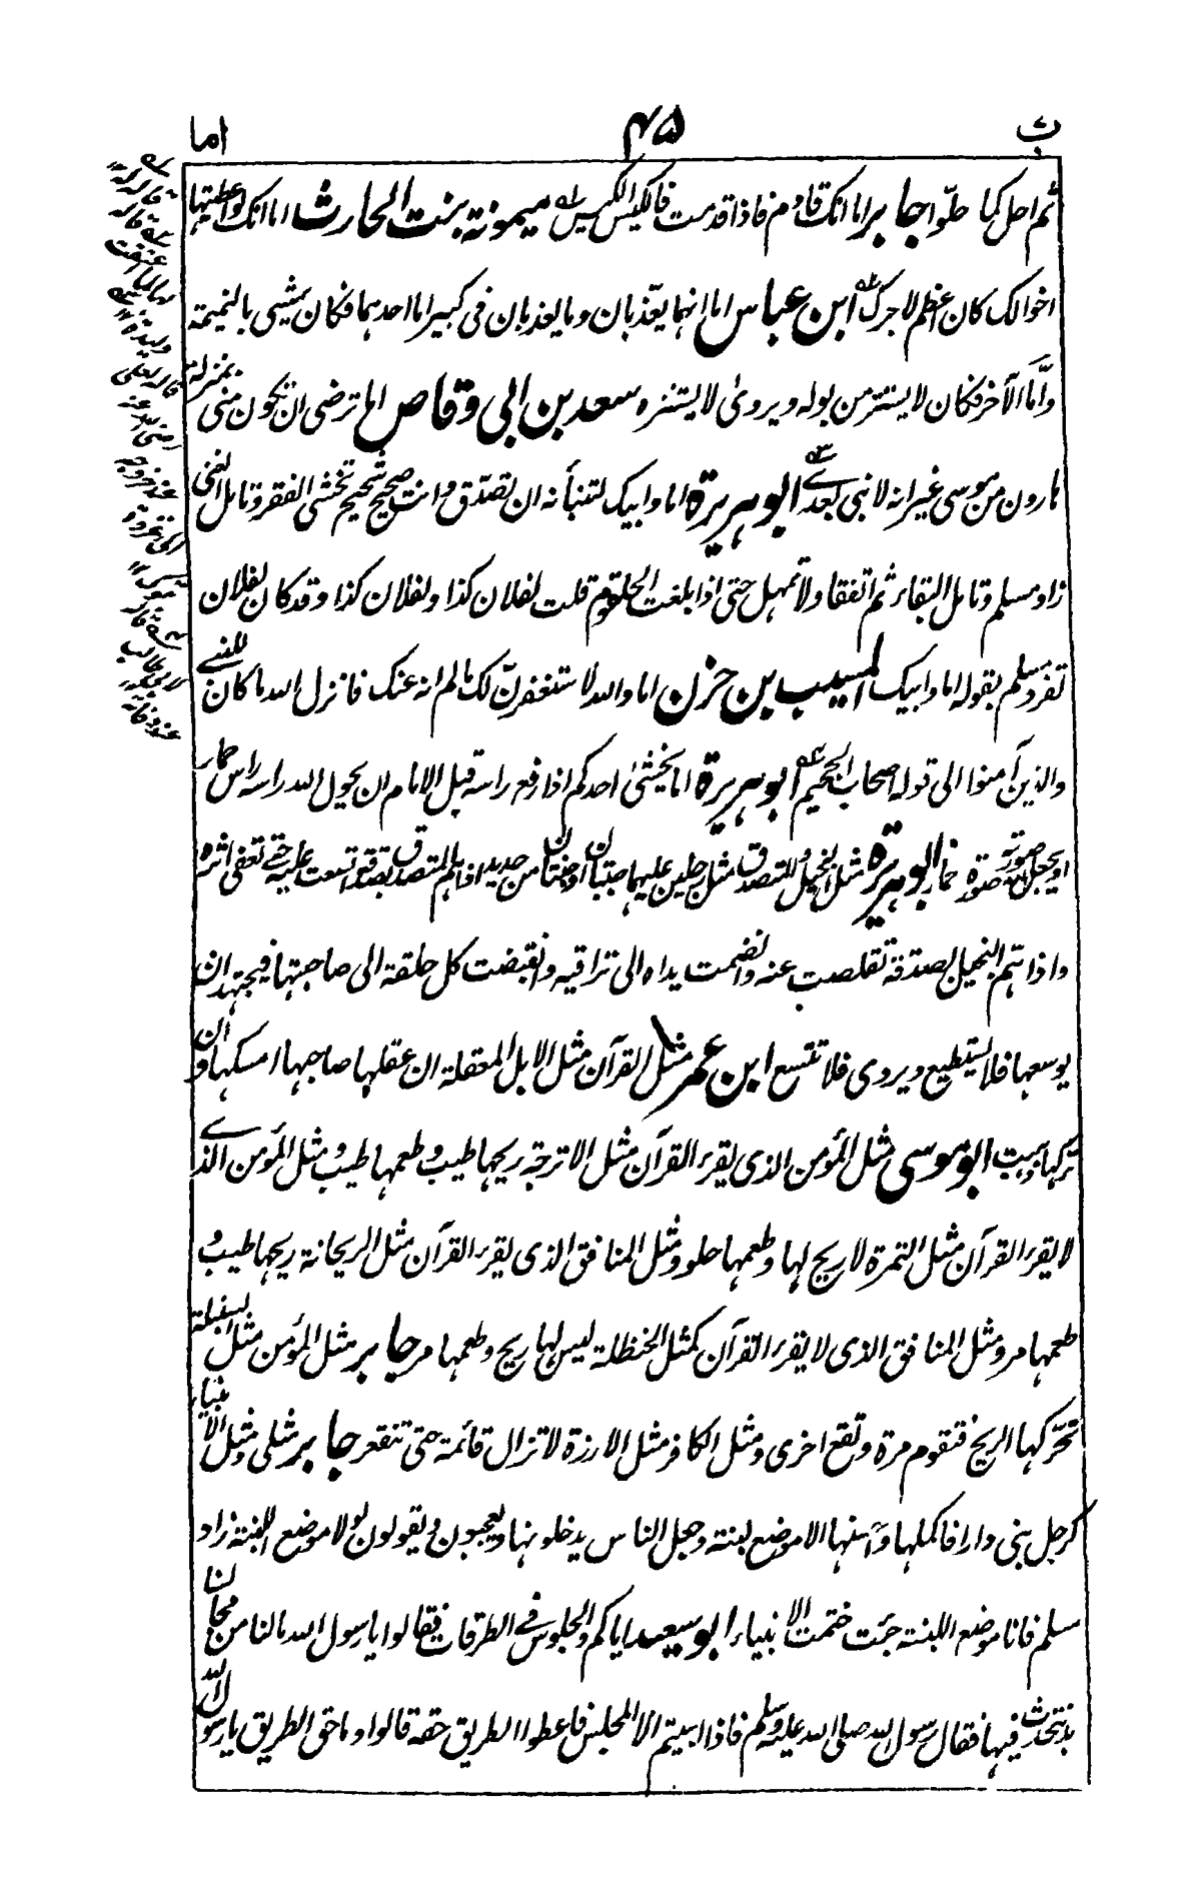 ب ۴۵ اما
ثم احل كما حلّوا جابر اما انك قادم فاذا قدمت فالكيس الكيس ميمونة بنت الحارث اما انك لو اعطيتها
اخوالك كان اعظم لاجرك ابن عباس اما انهما يعذّبان وما يعذبان فى كبير اما احدهما فكان يمشى بالنميمة
وامّا الآخر فكان لا يستتر من بوله ويروى لا يستنزه سعد بن ابى وقاص اما ترضى ان تكون منى بمنزلة
هارون من موسى غير انه لا نبى بعدى ابو هريرة اما وابيك لتنبأنه ان تصدّق وانت صحيح شحيح تخشى الفقر وتامل الغنى
زاد مسلم وتامل البقاء ثم اتفقا ولا تمهل حتى اذا بلغت الحلقوم قلت لفلان كذا ولفلان كذا وقد كان لفلان
تفرد مسلم بقوله اما وابيك المسيب بن حزن اما والله لاستغفرنّ لك مالم انه عنك فانزل الله ما كان للنبى
والذين آمنوا الى قوله اصحاب الجحيم ابو هريرة اما يخشى احدكم اذا رفع راسه قبل الامام ان يحول الله راسه راس حمار
او يجعل الله صورته صورة حمار ابو هريرة مثل البخيل والمتصدق مثل رجلين عليهما جبتان او جنتان من حديد اذا هم المتصدق بصدقة اتسعت عليه حتى تعفى اثره
واذا هم البخيل بصدقة تقلصت عنه وانضمت يداه الى تراقيه وانقبضت كل حلقة الى صاحبتها فيجتهد ان
يوسعها فلا يستطيع ويروى فلا تتسع ابن عمر مثل القرآن مثل الابل المعقلة ان عقلها صاحبها امسكها وان
تركها ذهبت ابو موسى مثل المؤمن الذى يقرء القرآن مثل الاترجة ريحها طيب وطعمها طيب ومثل المؤمن الذى
لا يقرء القرآن مثل التمرة لا ريح لها وطعمها حلو ومثل المنافق الذى يقرء القرآن مثل الريحانة ريحها طيب و
طعمها مر ومثل المنافق الذى لا يقرء القرآن كمثل الحنظلة ليس لها ريح وطعمها مر جابر مثل المؤمن مثل السنبلة
تحرّكها الريح فتقوم مرة وتقع اخرى ومثل الكافر مثل الارزة لا تزال قائمة حتى تنقعر جابر مثلى ومثل الانبياء
كرجل بنى دارا فاكملها واحسنها الا موضع لبنة وجعل الناس يدخلونها ويعجبون ويقولون لولا موضع اللبنة زاد
مسلم فانا موضع اللبنة جئت ختمت الانبياء ابو سعيد اياكم والجلوس فى الطرقات فقالوا يا رسول الله مالنا من مجالسنا
بد نتحدث فيها فقال رسول الله صلى الله عليه وسلم فاذا ابيتم الا المجلس فاعطوا الطريق حقه قالوا وما حق الطريق يا رسول الله